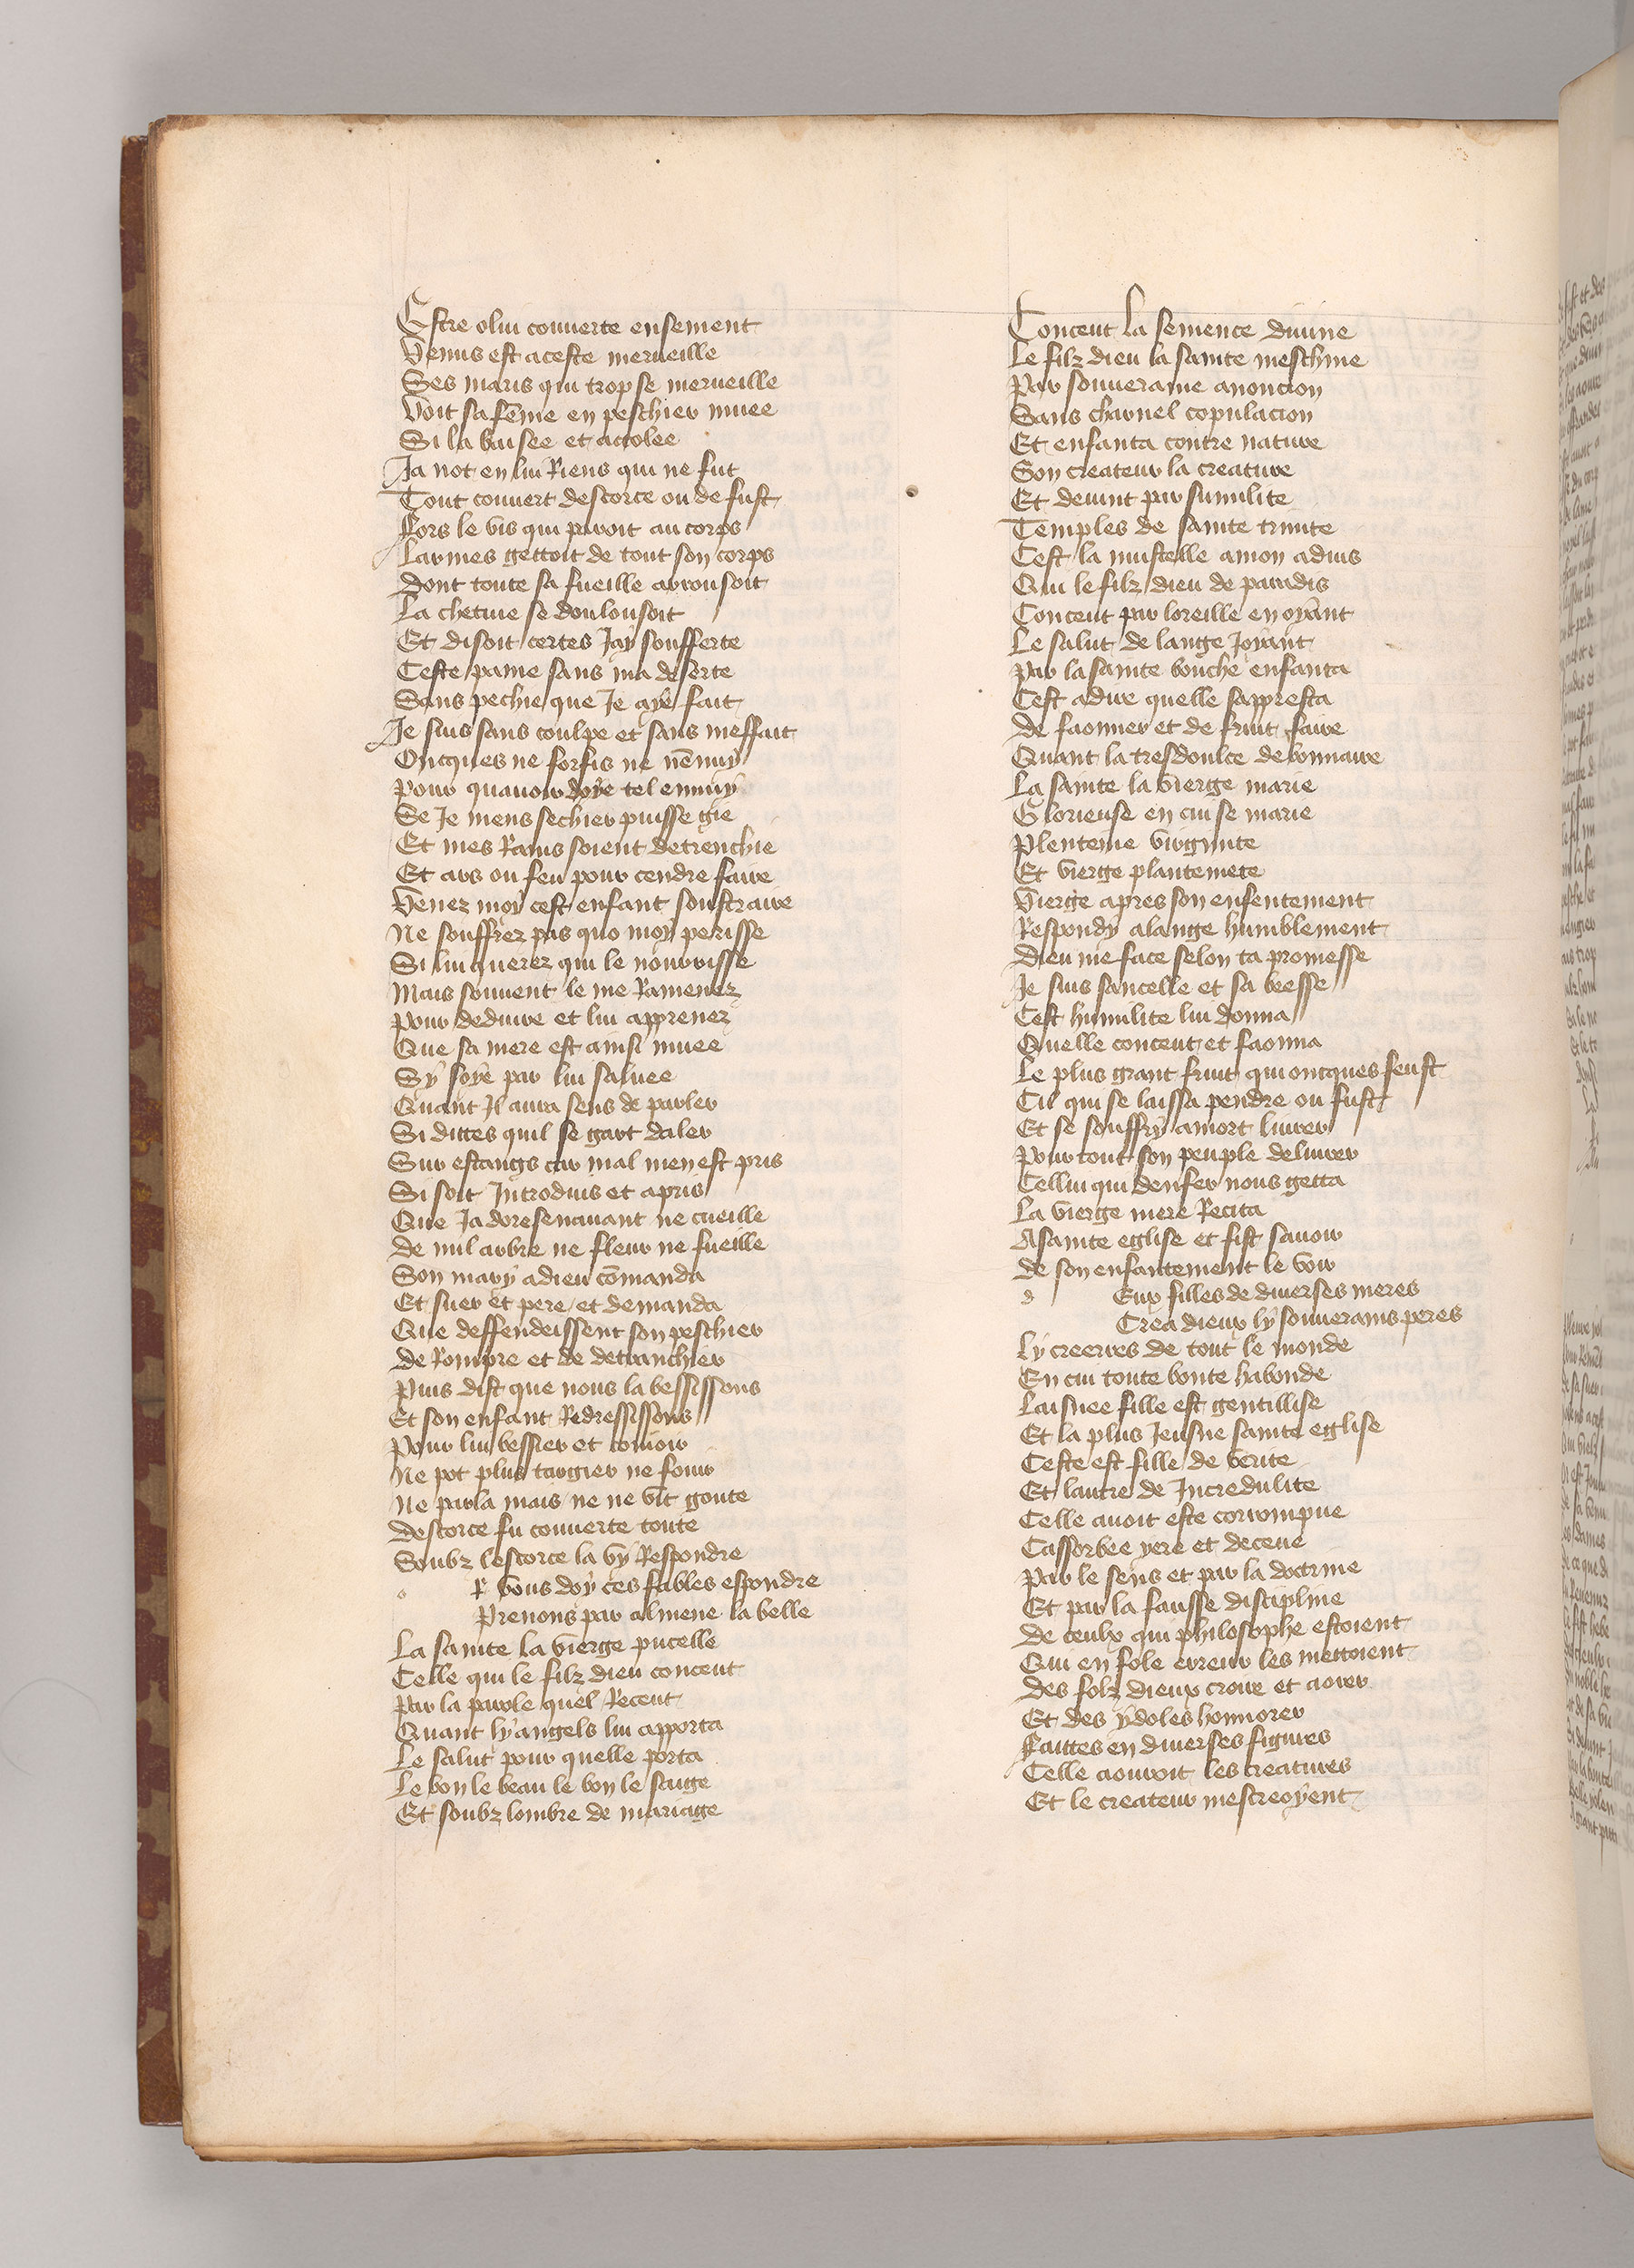 Estre o lui couuerte ensement
Venus est a ceste merueille
Ses maris qui trop se merueille
Voit sa fēme en peschier muee
Si la baisee et acolee
Ja not en lui Riens qui ne fut
Tout couuert descorce ou de fust
Fors le vis qui paroit au corps
Larmes gettoit de tout son corps
Dont toute sa fueille arrousoit
La chetiue se doulousoit
Et disoit certes Jay soufferte
Ceste paine sans ma deserte
Sans pechie que Je aye fait
Je suis sans coulpe et sans meffait
Oncques ne forfis ne nēnuy
Pour quauoir doye tel ennuy
Se Je mens sechier puisse gie
Et mes Rains soient detrenchie
Et ars ou feu pour cendre faire
Venez moy cest enfant soustraire
Ne souffrez pas quo moy perisse
Si lui querez qui le nourrisse
Mais souuent le me Ramenez
Pour deduire et lui apprenez
Que sa mere est ainsi muee
Sy soye par lui saluee
Quant Il aura sens de parler
Si dittes quil se gart daler
Sur estangs car mal men est pris
Si soit Introduis et apris
Que Ja doresenauant ne cueille
De nul arbre ne fleur ne fueille
Son mary a dieu cōmanda
Et suer et pere et demanda
Que deffendeissent son peschier
De Rompre et de detranchier
Puis dist que nous la bessissons
Et son enfant Redressissons
Pour lui bessier et conioir
Ne pot plus targier ne fouir
Ne parla mais ne ne vit goute
Descorce fu couuerte toute
Soubz lescorce la vy Respondre
r vous doy ces fables espondre
Prenons par almene la belle
La sainte la vierge pucelle
Celle qui le filz dieu conceut
Par la parole quel Receut
Quant ly angels lui apporta
Le salut pour quelle porta
Le bon le beau le bon le saige
Et soubz lombre de mariage
Conceut la semence diuine
Le filz dieu la sainte meschine
Par souueraine anoncion
Sans charnel copulacion
Et enfanta contre nature
Son createur la creature
Et deuint par sumilite
Temples de sainte trinite
Cest la mustelle a mon aduis
Qui le filz dieu de paradis
Conceut par loreille en oyant
Le salut de lange Joyant
Par la sainte bouche enfanta
Cest a dire quelle sappresta
De faonner et de fruit faire
Quant la tresdoulce debonnaire
La sainte la vierge marie
Glorieuse en cui se marie
Plenteine virginite
Et vierge planteinete
Vierge apres son enfentement
Respondy a lange humblement
Dieu me face selon ta promesse
Je suis sancelle et sa beesse
Cest humilite lui donna
Quelle conceut et faonna
Le plus grant fruit qui oncques feust
Cil qui se laissa pendre ou fust
Et se souffry a mort liurer
Pour tout son peuple deliurer
Cellui qui denfer nous getta
La vierge mere Recita
A sainte eglise et fist sauoir
De son enfantement le voir
d Eux filles de diuerses meres
Crea dieux ly souuerains peres
Ly creerres de tout le monde
En cui toute bonte habonde
Laisnee fille est gentillise
Et la plus Jeusne sainte eglise
Ceste est fille de verite
Et lautre de Incredulite
Celle auoit este corrompue
Cassorbee yere et deceue
Par le sens et par la doctrine
Et par la fausse discipline
De ceulx qui philosophe estoient
Qui en fole erreur les mettoient
Des folz dieux croire et aorer
Et des ydoles honnorer
Faittes en diuerses figures
Celle aouroit les creatures
Et le createur mescreoyent